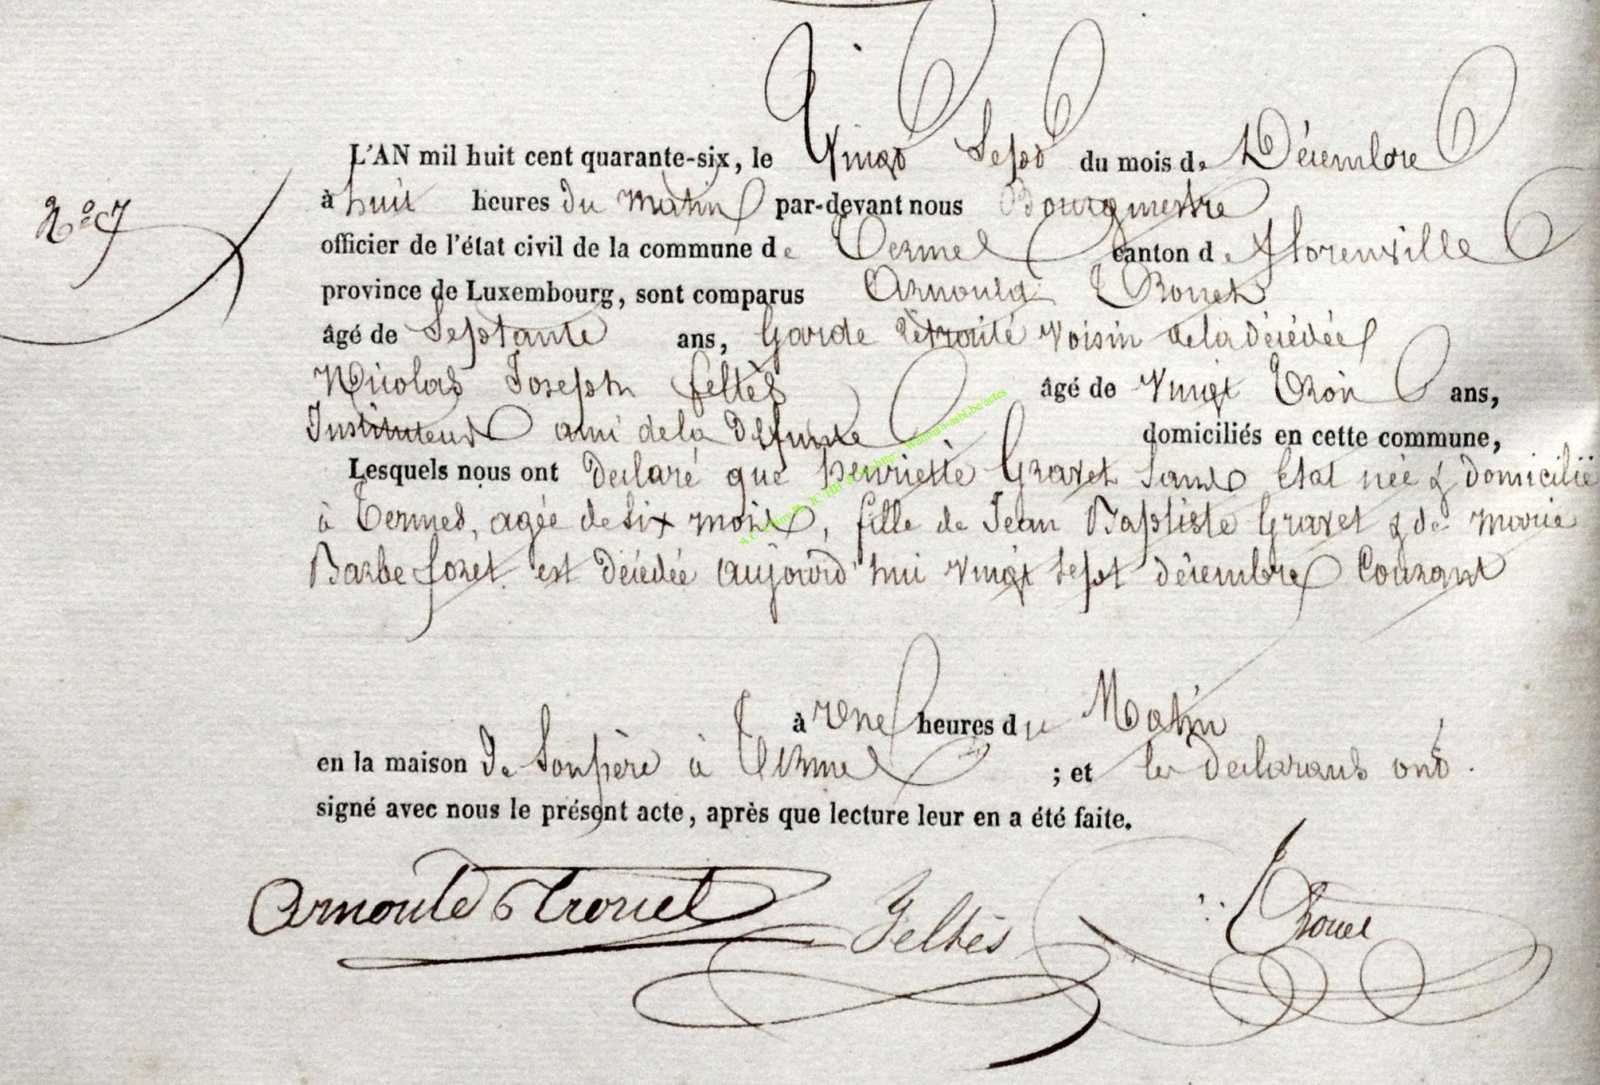 L'AN mil huit cent quarante-six, le Vingt Sept du mois de Décembre
N° 7
à huit heures du matin par-devant nous Bourgmestre
officier de l'état civil de la commune de Termes canton de Florenville
province de Luxembourg, sont comparus Arnould Trouet
âgé de Septante ans, Garde rétraité voisin de la décédée
Nicolas Joseph feltès âgé de vingt Trois ans,
Instituteur ami de la défunte domiciliés en cette commune,
Lesquels nous ont declaré que henriette Gravet Sans Etat née & domicilié
à Termes, agée de six mois, fille de Jean Baptiste Gravet & de marie
Barbe foret est décédée aujourd'hui vingt sept décembre Courant
à une heures du Matin
en la maison de Son père à Termes ; et les déclarants ont
signé avec nous le présent acte, après que lecture leur en a été faite.
Arnould Trouet Feltès Trouet